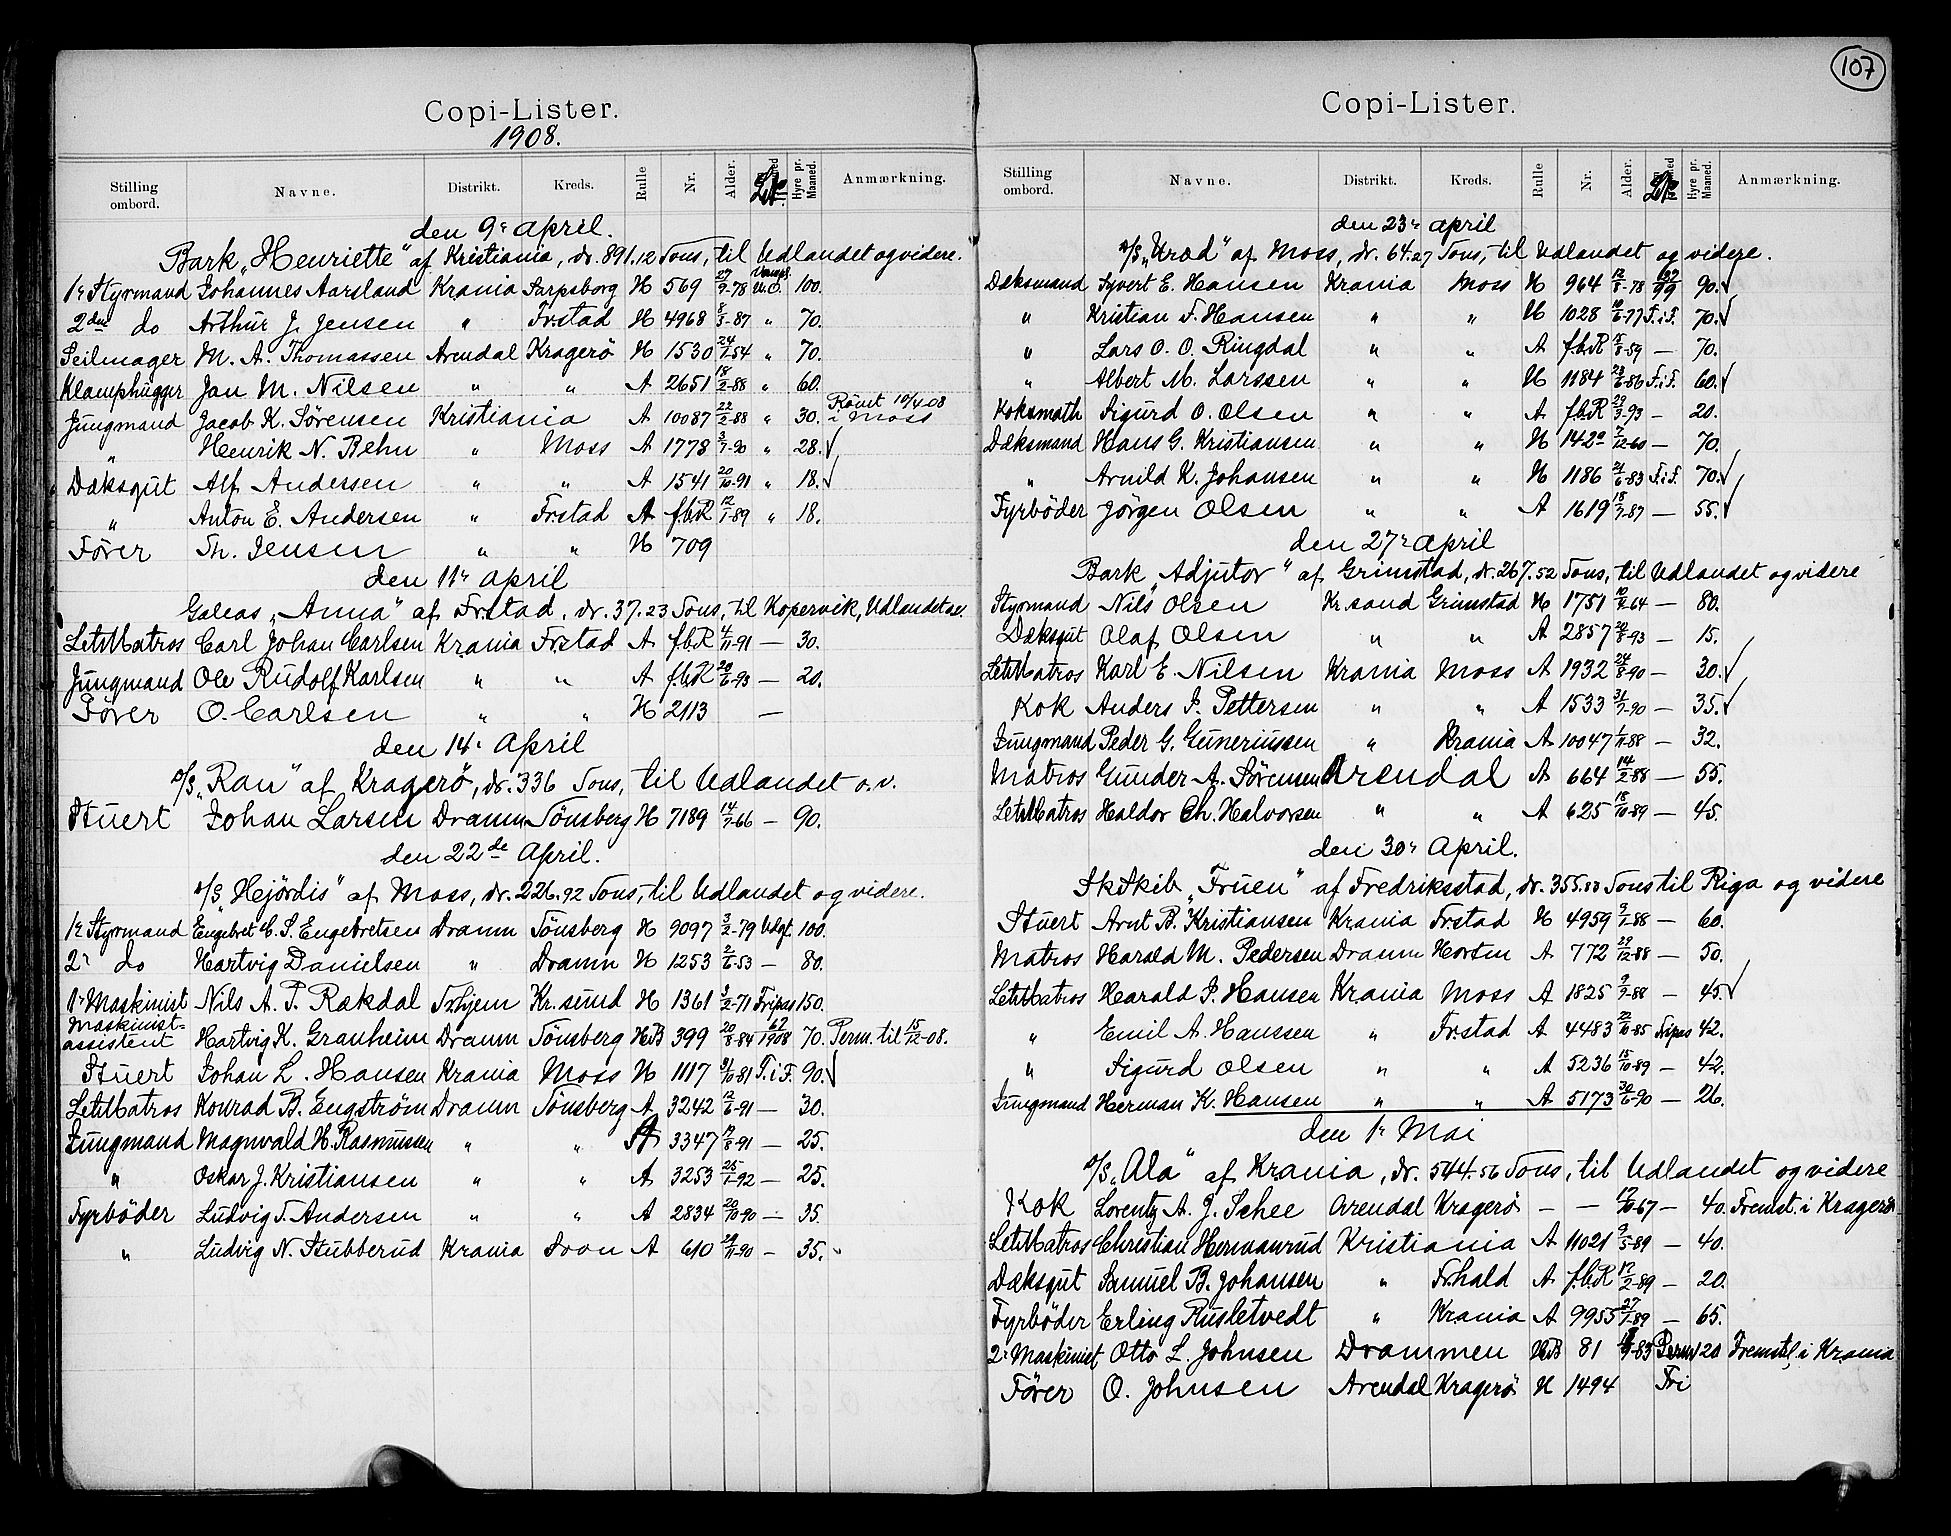 Copi-Lister.
1908.
Stilling ombord. Navne. Distrikt. Kreds. Rulle Nr. Alder. Hyre pr. Maaned. Anmærkning.
den 9' april.
Bark „Henriette" af Kristiania, dr. 891.12 Tons, til Udlandet og videre.
1' Styrmand Johannes Aarsland Krania Sarpsborg H 569 27/9-78 100.
2den do Arthur J. Jensen " Fr.stad H 4968 8/3-87 " 70.
Seilmager M. A. Thomassen Arendal Kragerö H 1530 24/1-54 " 70.
Klamphugger Jan M. Nilsen " " A 2651 18/2-88 " 60.
Jungmand Jacob K. Sørensen Kristiania A 10087 22/2-88 " 30. Rømt 10/4 08 i Moss
" Henrik N. Rehn " Moss A 1778 3/7-90 " 28. ✓
Dæksgut Alf Andessen " " A 1541 20/10-91 " 18. ✓
" Anton E. Andersen " Fr.stad A f.b.R 12/1-89 " 18.
Fører Th. Jensen " " H 709
den 11' april
Galeas „Anna" af Fr.stad, dr. 37.23 Tons, til Kopervik, Udlandet
LetMatros Carl Johan Carlsen Krania Fr.stad A f.b.R 4/11-91 — 30.
Jungmand Ole Rudolf Karlsen " " A f.b.R 20/6-93 — 20.
Fører O. Carlsen " " H 2113 —
den 14' April
D/S „Ran" af Kragerö, dr. 336 Tons, til Udlandet o. v.
Stuert Johan Larsen Dramn Tönsberg H 7189 14/7-66 — 90.
den 22de April.
D/S „Hejördis" af Moss, dr. 226.92 Tons, til Udlandet og videre.
1' Styrmand Engebret C. S. Engebretsen Dramn Tönsberg H 9097 3/2-79 Udgt. 100.
2' do Hartvig Danielsen " Dramn H 1253 2/6-53 — 80.
1' Maskinist Nils A. P. Rakdal Tr.hjem Kr.sund H 1361 3/2-71 Fripas 150.
Maskinist-assistent Hartvig K. Granheim Dramn Tönsberg HB 399 20/8-84 67/1908 70. Perm. til 15/12-08.
Stuert Johan L. Hansen Krania Moss H 1117 31/10-81 F. i F. 90. ✓
LetMatros Konrad B. Engström Dramn Tönsberg A 3242 12/6-91 — 30.
Jungmand Magnvald H. Rasmussen " " A 3347 19/8-91 — 25.
" Oskar J. Kristiansen " " A 3253 25/1-92 — 25.
Fyrböder Ludvig T. Andersen " " A 2834 20/10-90 — 35.
" Ludvig N. Stubberud Krania Soon A 610 29/11-90 — 35.
107
Copi-Lister.
Stilling ombord. Navne. Distrikt. Kreds. Rulle Nr. Alder. Hyre pr. Maaned. Anmærkning.
den 23' april
D/S „Kræd" af Moss, dr. 64.27 Tons, til Udlandet og videre.
Dæksmand Syvert E. Hansen Krania Moss H 964 12/8-78 90. ✓
" Kristian F. Hansen " " H 1028 10/6-77 F. i F. 70. ✓
" Lars O. O. Ringdal " " A f.b.R 12/8-59 — 70.
" Albert M. Larssen " " H 1184 23/6-86 F. i F. 60. ✓
Koksmath Sigurd O. Olsen " " A f.b.R 29/3-93 — 20.
Dæksmand Hans G. Kristiansen " " H 1422 7/12-60 — 70.
" Arnild K. Johansen " " H 1186 21/6-83 F. i F. 70. ✓
Fyrböder Jörgen Olsen " " A 1619 18/7-87 — 55. ✓
den 27' april
Bark „Adjutor" af Grimstad, dr. 267.52 Tons, til Udlandet og videre
Styrmand Nils Olsen Kr.sand Grimstad H 1751 10/9-64 — 80.
Dæksgut Olaf Olsen " " A 2857 20/8-93 — 15.
LetMatros Karl E. Nilsen Krania Moss A 1932 24/8-90 — 30. ✓
Kok Anders J. Pettersen " " A 1533 31/7-90 — 35. ✓
Jungmand Peder G. Guneriussen " Krania A 10047 1/11-88 — 32.
Matros Gunder A. Sørensen Arendal A 664 14/2-88 — 55.
LetMatros Haldor Ch. Halvorsen " " A 625 18/10-89 — 45.
den 30' April.
Sk.Skib „Fruen" af Fredriksstad, dr. 355.88 Tons til Riga og videre
Stuert Arnt B. Kristiansen Krania Fr.stad H 4959 9/1-88 — 60.
Matros Harald M. Pedersen Dramn Horten A 772 29/12-88 — 50.
LetMatros Harald P. Hansen Krania Moss A 1825 9/7-88 — 45. ✓
" Emil A. Hanssen " Fr.stad A 4483 22/10-85 Fripas 42.
" Sigurd Olsen " " A 5236 15/10-89 — 42.
Jungmand Herman K. Hansen " " A 5173 30/6-90 — 26.
den 1' Mai
D/S „Ala" af Krania, dr. 544.56 Tons, til Udlandet og videre
Kok Lorentz A. J. Schee Arendal Kragerö — — 12/10-67 — 40. Fremst. i Kragerö
LetMatros Christian Hermanrud Kristiania A 11021 9/5-89 — 40.
Dæksgut Samuel B. Johansen " Fr.hald A f.b.R 17/2-89 — 20.
Fyrböder Erling Rustetvedt " Krania A 9955 27/1-89 — 65.
2' Maskinist Otto L. Johnsen Drammen HB 81 Perm 120 Fremst. i Krania
Fører O. Johnsen Arendal Kragerö H 1494 Fri